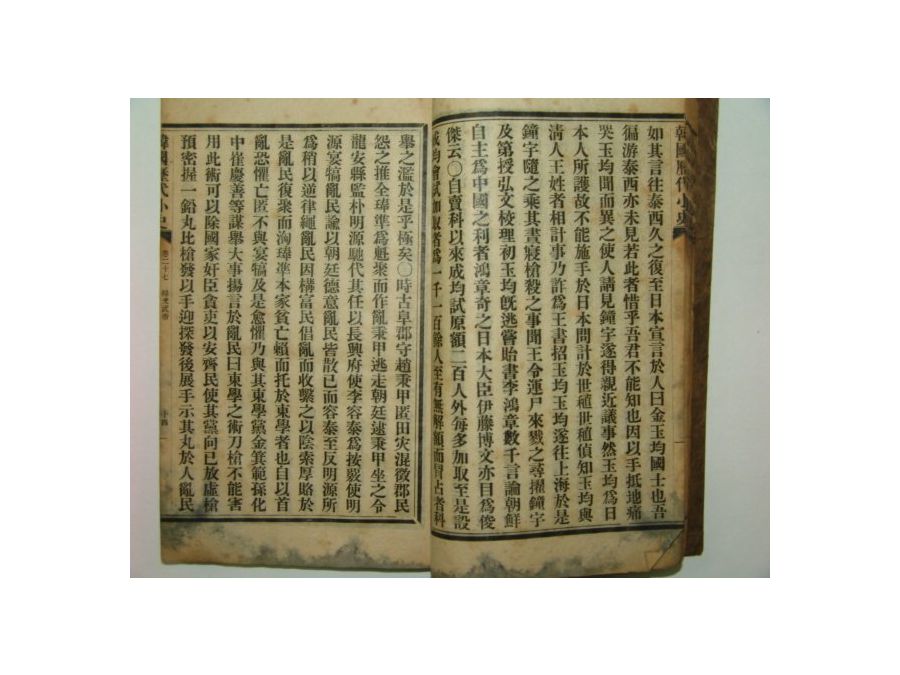 韓國歷代小史
如其言往泰西久之復至日本宣言於人曰金玉均國士也吾
徧游泰西亦未見若此者惜乎吾君不能知也因以手抵地痛
哭玉均聞而異之使人請見鐘宇遂得親近議事然玉均爲日
本人所護故不易施手於日本問計於世稙世稙偵知玉均與
清人王姓者相計事乃詐爲王書招玉均玉均遂往上海於是
鐘宇隨之乘其晝寢槍殺之事聞王令運尸來戮之尋擢鐘宇
及第授弘文校理初玉均旣逃嘗貽書李鴻章數千言論朝鮮
自主爲中國之利者鴻章奇之日本大臣伊藤博文亦目爲俊
傑云〇自賣科以來成均試原額二百人外每多加取至是設
成均會試加取者爲一千一百餘人至有無解額而冒占者科
擧之濫於是乎極矣〇時古阜郡守趙秉甲匿田災混徵郡民
怨之推全琫準爲魁聚而作亂秉甲逃走朝廷逮秉甲坐之令
龍安縣監朴明源馳代其任以長興府使李容泰爲按覈使明
源宴犒亂民諭以朝廷德意亂民皆散已而容泰至反明源所
爲稍以逆律繩亂民因構富民倡亂而收繫之以陰索厚賂於
是亂民復聚而洶琫準本家貧亡賴而托於東學者也自以首
亂恐懼亡匿不與宴犒及是愈懼乃與其東學黨金箕範孫化
中崔慶善等謀擧大事揚言於亂民曰東學之術刀槍不能害
用此術可以除國家奸臣貪吏以安齊民使其黨向已放虛槍
預密握一鉛丸比槍發以手迎探發後展手示其丸於人亂民
韓國歷代小史 卷二十七